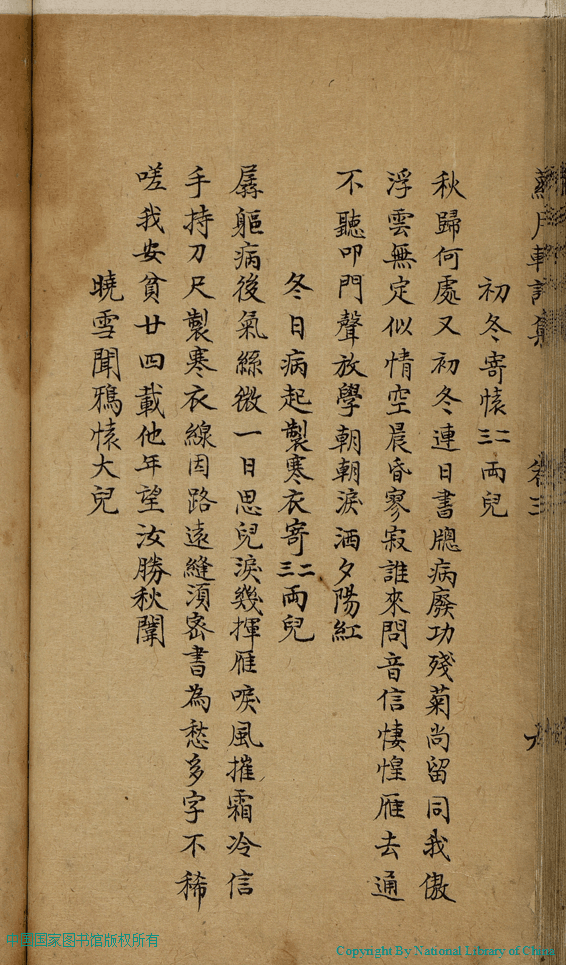 蘇月軒詩集 卷三 九
初冬寄懷二三兩兒
秋歸何處又初冬連日書牕病廢功殘菊尚留同我傲
浮雲無定似情空晨昏寥寂誰來問音信悽惶雁去通
不聽叩門聲放學朝朝淚洒夕陽紅
冬日病起製寒衣寄二三兩兒
孱軀病後氣絲微一日思兒淚幾揮雁唳風摧霜冷信
手持刀尺製寒衣線因路遠縫須密書為愁多字不稀
嗟我安貧廿四載他年望汝勝秋闈
曉雪聞鴉懷大兒
中国国家图书馆版权所有
Copyright By National Library of China